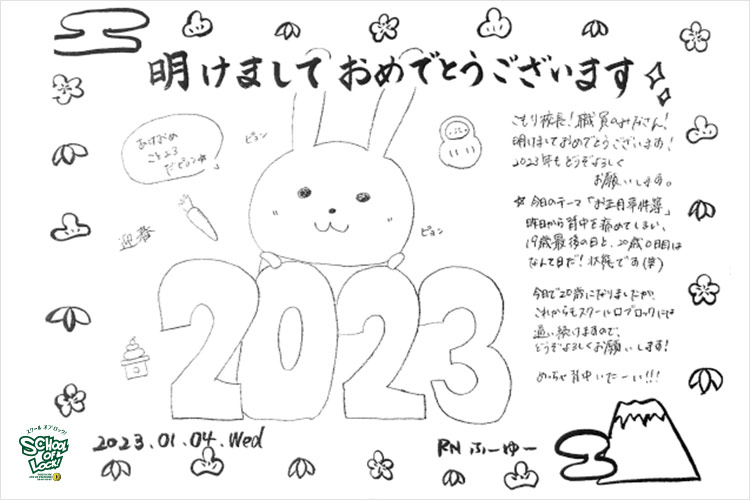 明けましておめでとうございます
あけおめ
こと23
だピョン☆
ピョン
ピョン
迎春
2023
こもり校長!職員のみなさん!
明けましておめでとうございます!
2023年もどうぞよろしく
お願いします。
☆今日のテーマ「お正月事件簿」
昨日から背中を痛めてしまい、
19歳最後の日と、20歳0日目は
なんて日だ!状態です(笑)
今日で20歳になりましたが、
これからもスクールオブロックには
通い続けますので、
どうぞよろしくお願いします!
めっちゃ背中いたーい!!!
2023.01.04.Wed
RN ふーゆー
スクール オブ ロック!
SCHOOL
OF
LOCK!